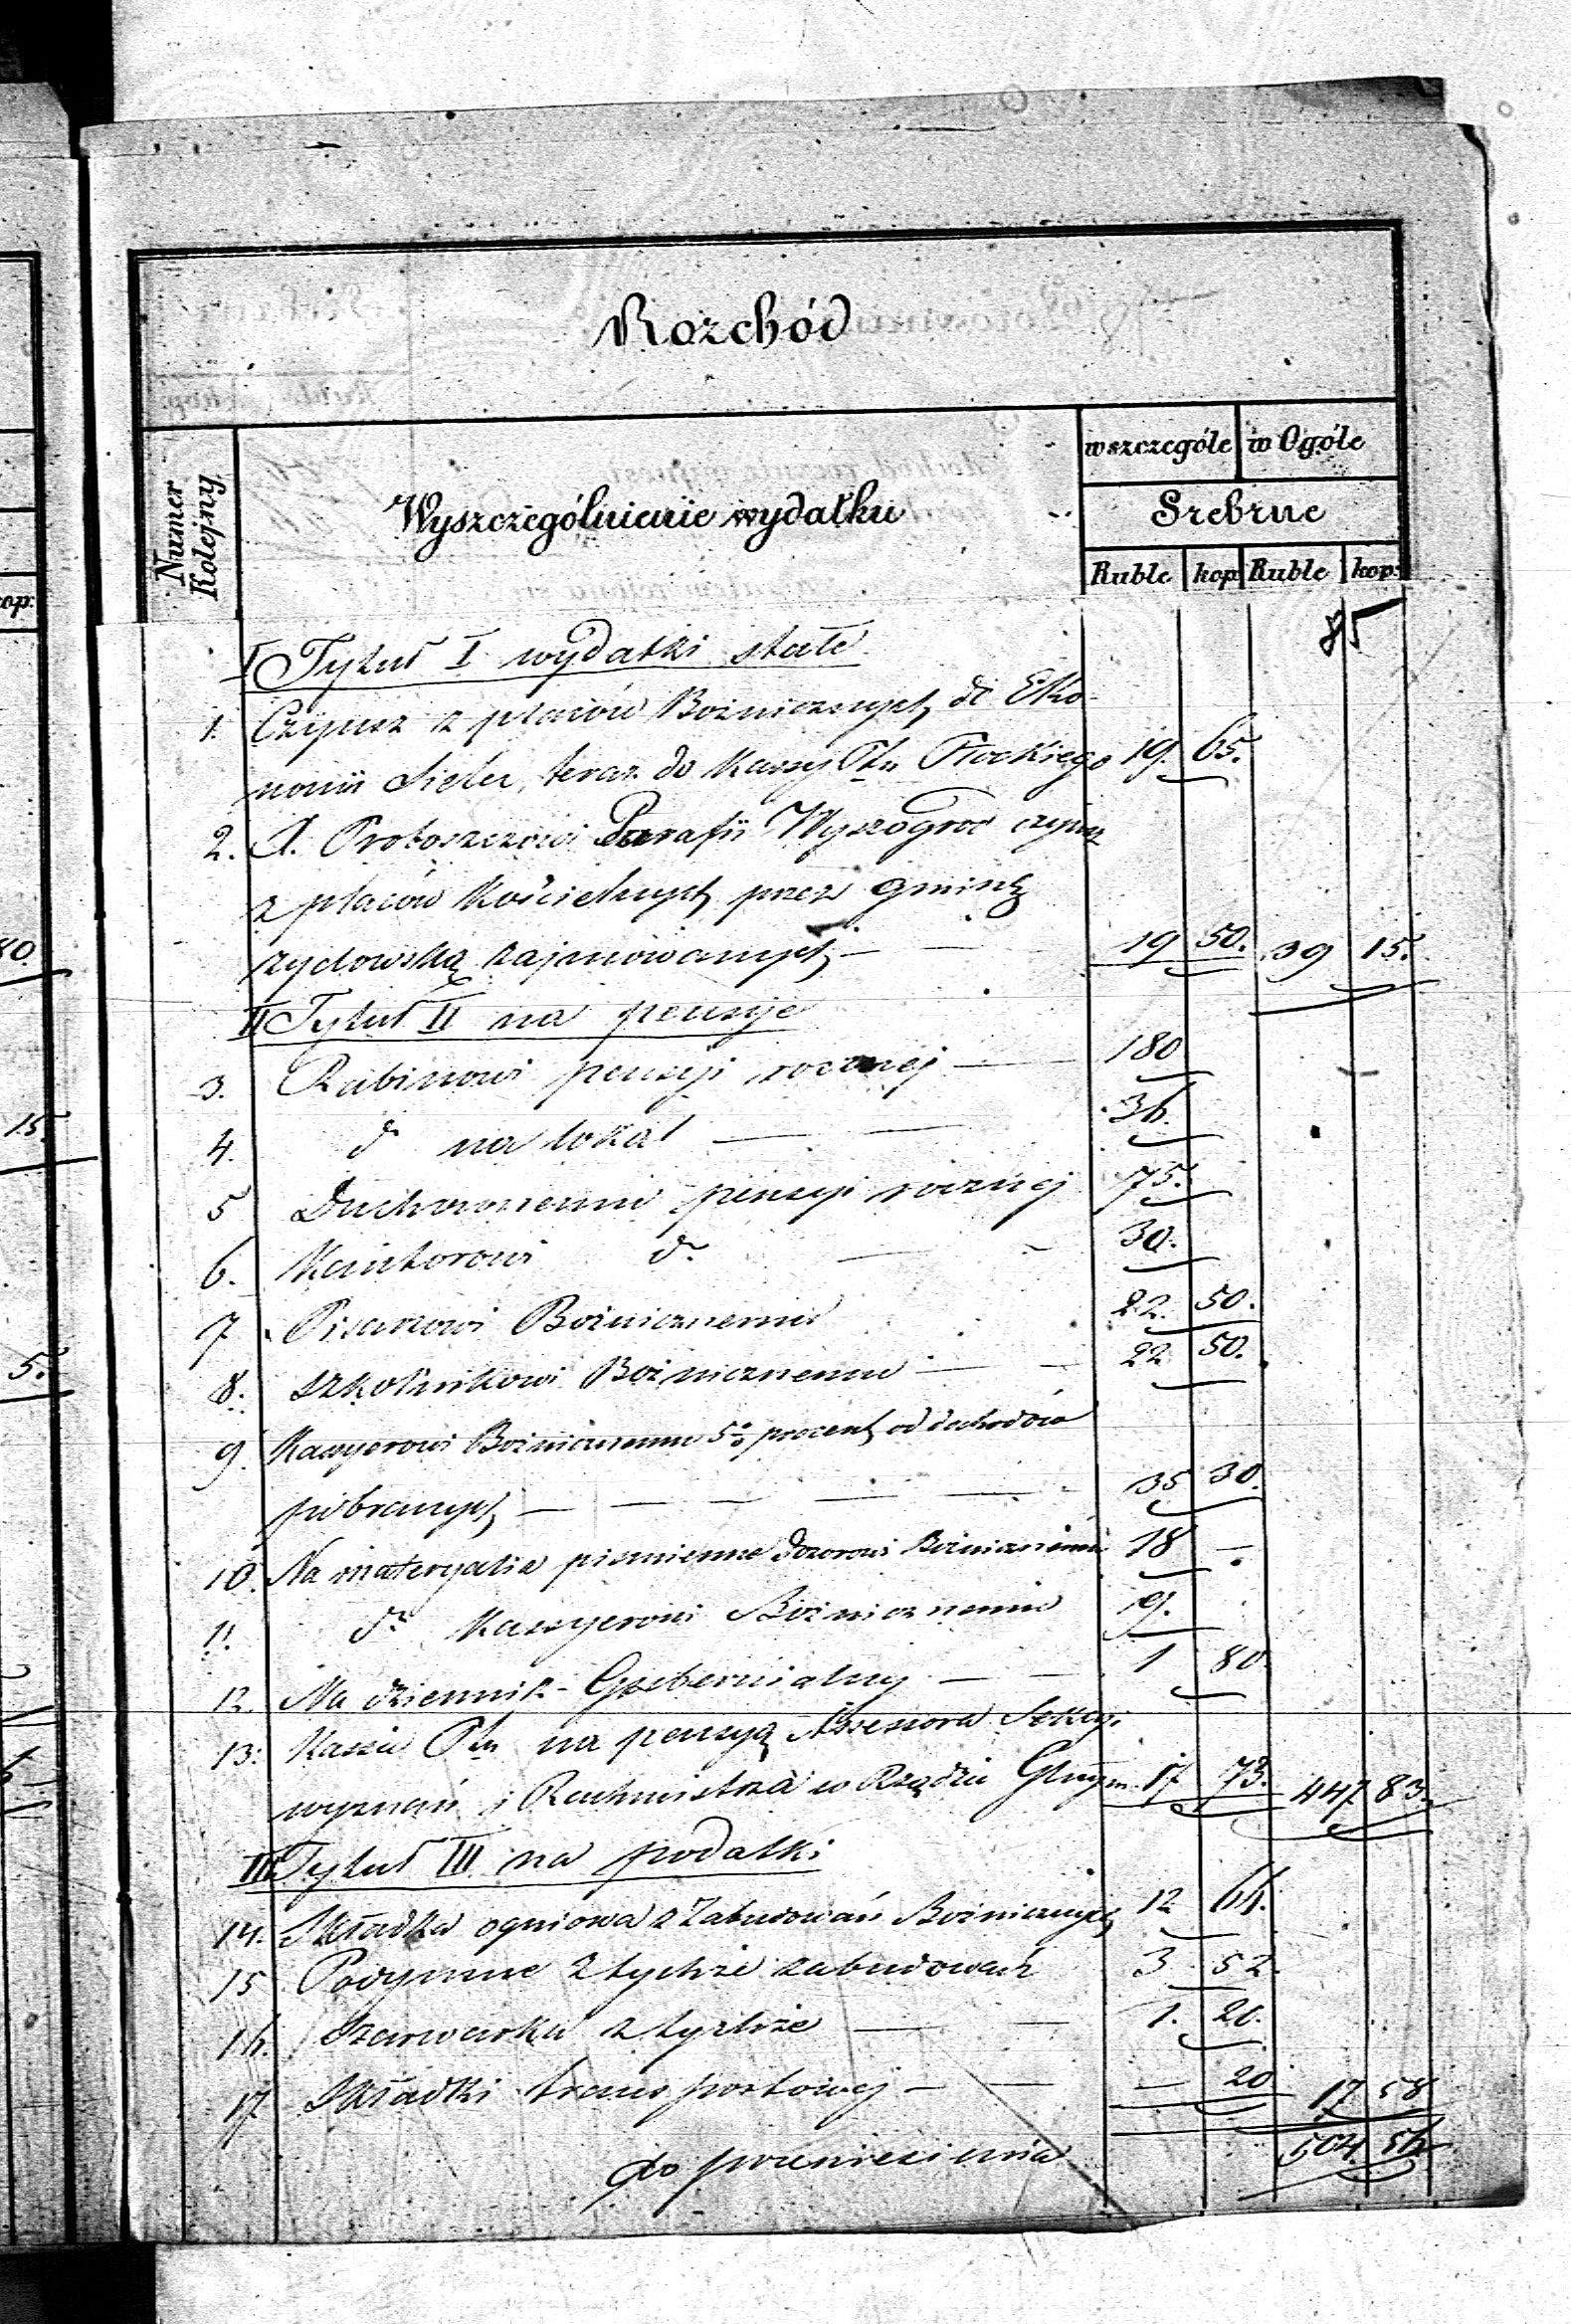 Rozchód
Numer Kolejny
Wyszczególnienie wydatku
w szczególe w Ogóle
Srebrne
Ruble kop Ruble kop:
85
I Tytuł I wydatki stałe
1. Czynsz z placów Bożnicznych do Eko-
nomii Sielec, teraz do Kassy Ptu Płockiego 19. 65.
2. X. Proboszczowi Parafii Wyszogrod czynsz
z placów Kościelnych przez gminę
żydowską zajmowanych — — 19 50. 39 15.
II Tytuł II na pensye
3. Rabinowi pensyi rocznej — 180
4. do na lokal — — 36.
5 Duchownemu pensyi rocznej 75.
6. Kantorowi do — - 30.
7 Pisarzowi Bożnicznemu 22. 50.
8. Szkolnikowi Bożnicznemu — - 22 50.
9. Kassyerowi Bożnicznemu 5% procent od dochodów
pobranych — — — — — - 35 30.
10. Na materyalia pismienne Dozorowi Bożnicznemu 18 —
11 do Kassyerowi Bożnicznemu 9.
12. Na dziennik Gubernialny — — 1 80.
13. Kassie Ptu na pensyą Assessora Sekcyi
wyznań i Rachmistrza w Rządzie Gbnym. 17 73. 447 83.
III Tytuł III na podatki
14. Składka ogniowa z Zabudowań Bożnicznych 12 66.
15 Podymne z tychże zabudowań 3 52.
16. Szarwarku z tychże — — 1. 20.
17 Składki transportowej — — — 20 17 58
do przeniesienia 504 56
80.
15.
5.
kop: